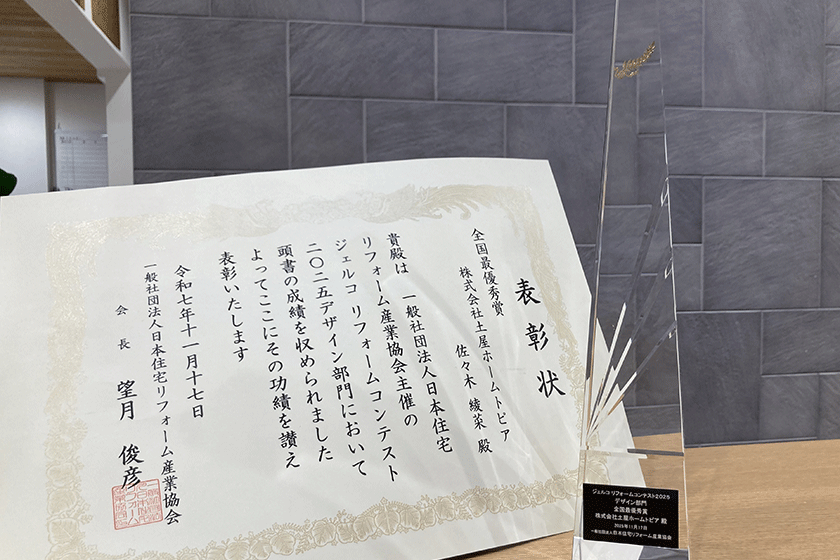 表彰状
全国最優秀賞
株式会社土屋ホームトピア
佐々木 綾菜 殿
貴殿は 一般社団法人日本住宅
リフォーム産業協会主催の
ジェルコ リフォームコンテスト
二〇二五デザイン部門において
頭書の成績を収められました
よってここにその功績を讃え
表彰いたします
令和七年十一月十七日
一般社団法人日本住宅リフォーム産業協会
会長 望月 俊彦
ジェルコ リフォームコンテスト2025
デザイン部門
全国最優秀賞
株式会社土屋ホームトピア 殿
2025年11月17日
一般社団法人日本住宅リフォーム産業協会